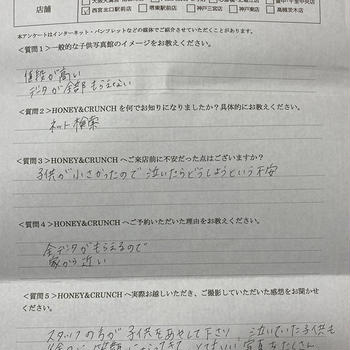 店舗
西宮北口駅前店
堺東駅前店
神戸三宮店
神戸東店
高槻茨木店
本アンケートはインターネット・パンフレットなどの媒体でご紹介させていただくことがあります。
<質問1>一般的な子供写真館のイメージをお教えください。
値段が高い
データが全部もらえない
<質問2>HONEY&CRUNCHを何でお知りになりましたか?具体的にお教えください。
ネット検索
<質問3>HONEY&CRUNCHへご来店前に不安だった点はございますか?
子供が小さかったので泣いたらどうしようという不安
<質問4>HONEY&CRUNCHへご予約いただいた理由をお教えください。
全データがもらえるので
家から近い
<質問5>HONEY&CRUNCHへ実際お越しいただき、ご撮影していただいた感想をお聞かせ
ください。
スタッフの方が子供をあやして下さり、泣いていた子供も
写真をたくさん